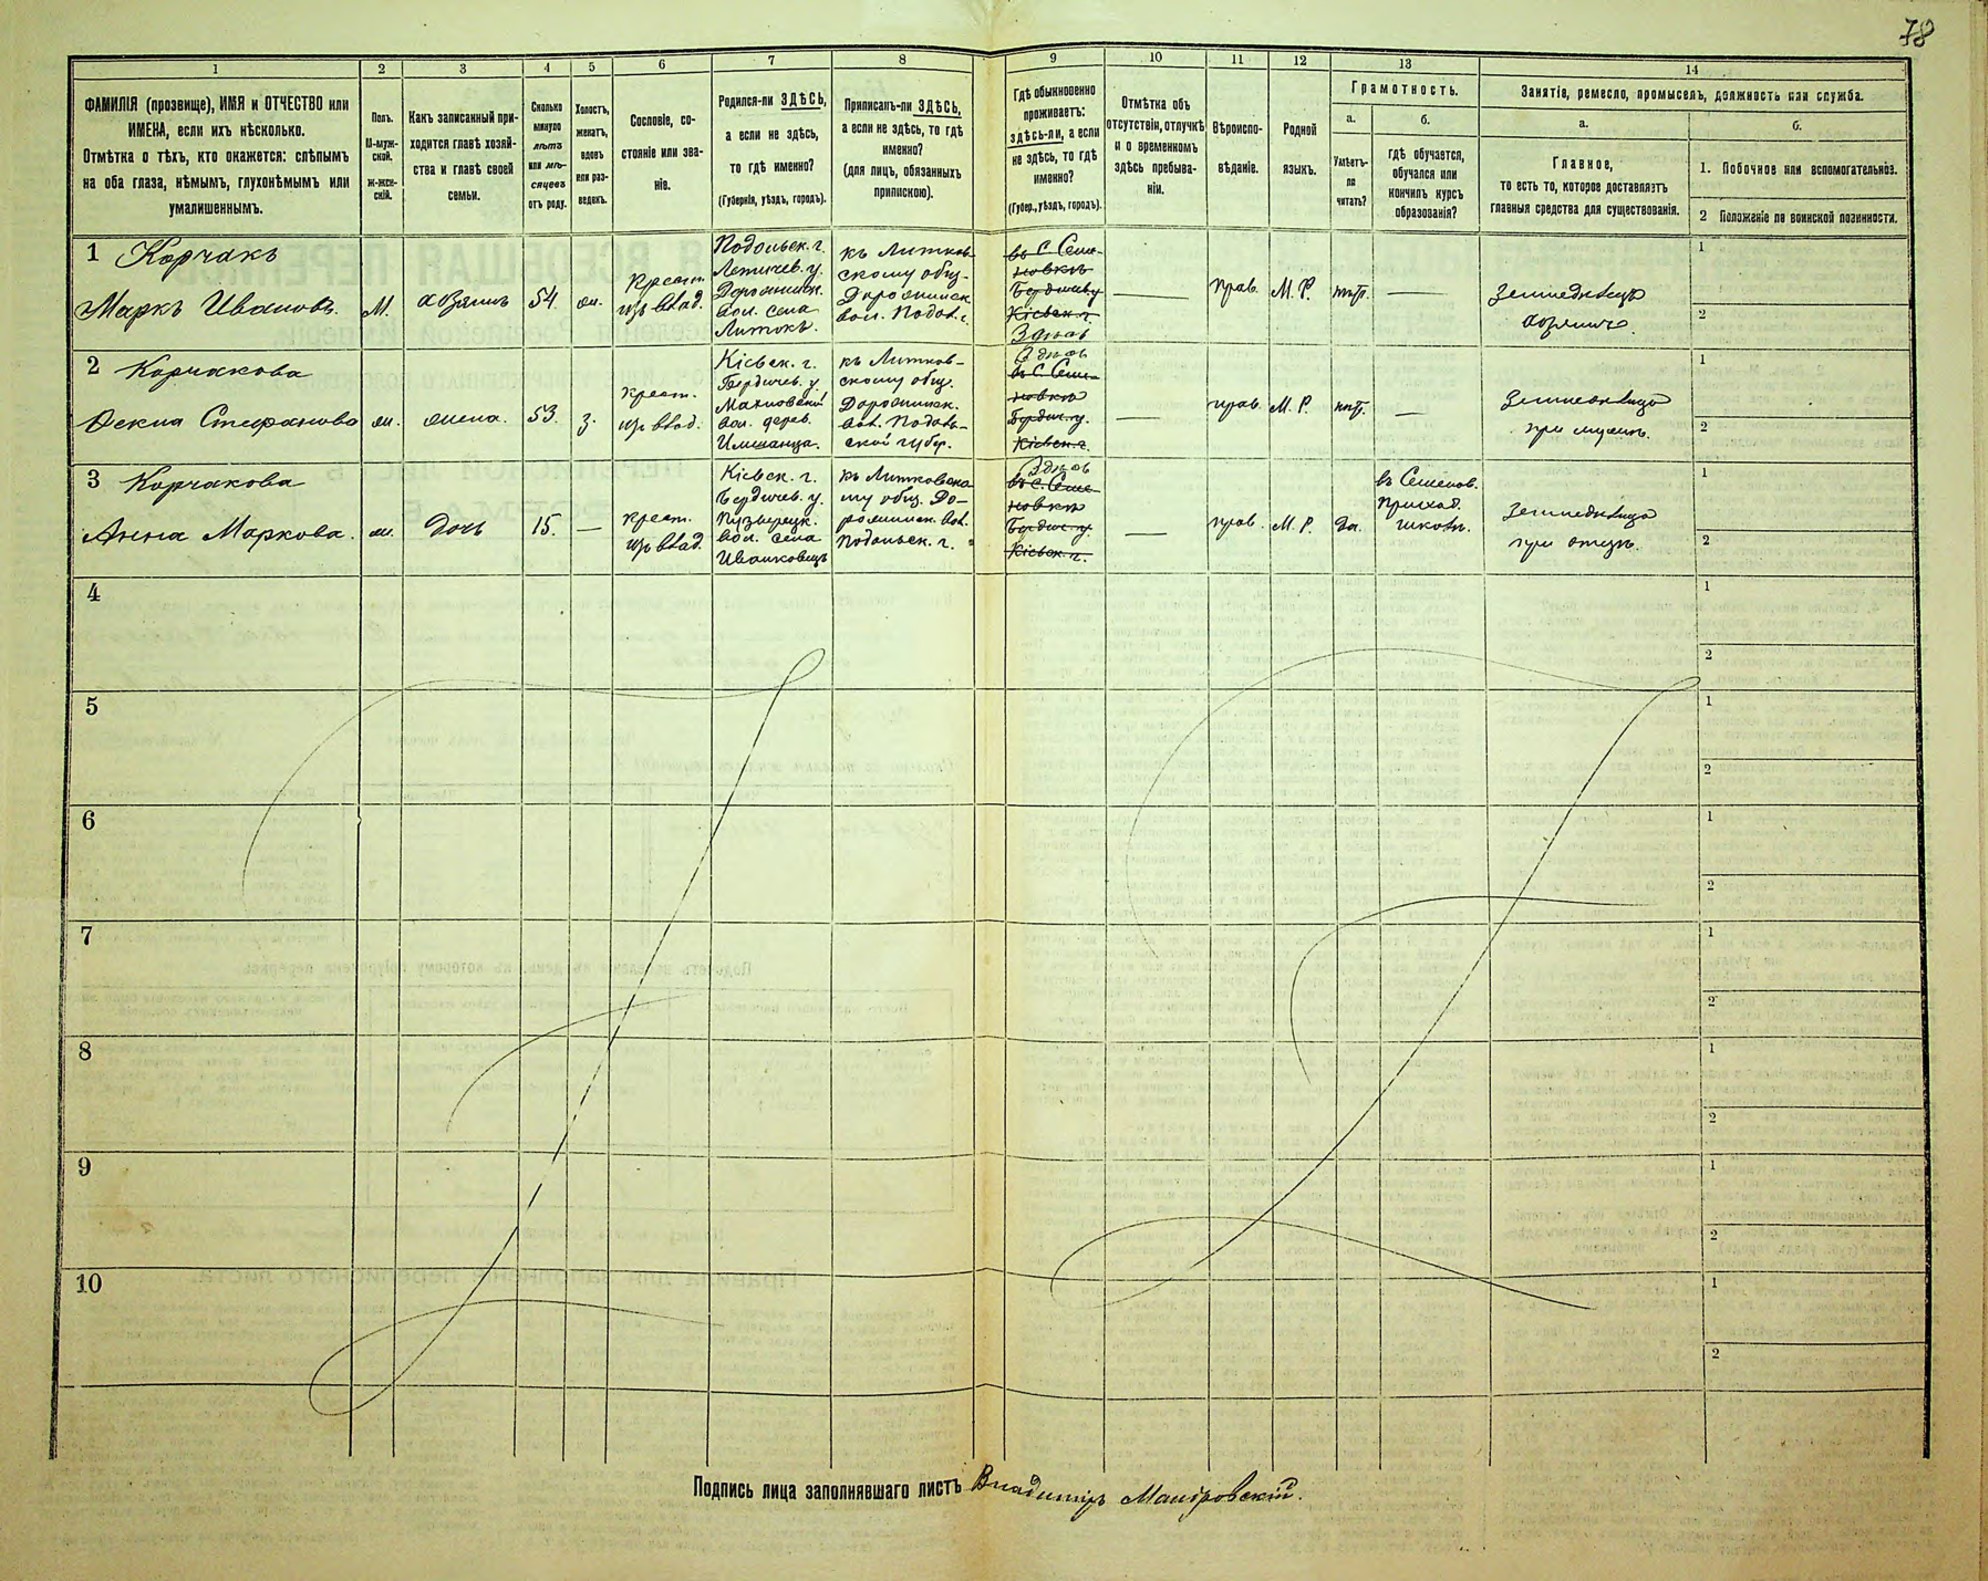 78
1 2 3 4 5 6 7 8 9 10 11 12 13 14
ФАМИЛІЯ (прозвище), ИМЯ и ОТЧЕСТВО или
ИМЕНА, если ихъ нѣсколько.
Отмѣтка о тѣхъ, кто окажется: слѣпымъ
на оба глаза, нѣмымъ, глухонѣмымъ или
умалишеннымъ.
Полъ.
М-муж-
ской.
ж-жен-
скій.
Какъ записанный при-
ходится главѣ хозяй-
ства и главѣ своей
семьи.
Сколько
минуло
лѣтъ
или мѣ-
сяцевъ
отъ роду.
Холостъ,
женатъ,
вдовъ
или раз-
веденъ.
Сословіе, со-
стояніе или зва-
ніе.
Родился-ли ЗДѢСЬ,
а если не здѣсь,
то гдѣ именно?
(Губернія, уѣздъ, городъ).
Приписанъ-ли ЗДѢСЬ,
а если не здѣсь, то гдѣ
именно?
(для лицъ, обязанныхъ
припискою).
Гдѣ обыкновенно
проживаетъ:
здѣсь-ли, а если
не здѣсь, то гдѣ
именно?
(Губер., уѣздъ, городъ).
Отмѣтка объ
отсутствіи, отлучкѣ
и о временномъ
здѣсь пребыва-
ніи.
Вѣроиспо-
вѣданіе.
Родной
языкъ.
Грамотность.
а.
Умѣетъ-
ли
читать?
б.
гдѣ обучается,
обучался или
кончилъ курсъ
образованія?
Занятіе, ремесло, промыселъ, должность или служба.
а.
Главное,
то есть то, которое доставляетъ
главныя средства для существованія.
б.
1. Побочное или вспомогательное.
2 Положеніе по воинской повинности.
1 Корчакъ
Маркъ Ивановъ.
М.
хозяинъ
54
жен.
Крест.
изъ влад.
Подольск. г.
Летичев. у.
вол. села
Литокъ.
къ Литков-
скому общ.
вол. Подол. г.
въ С. Семе-
новкѣ
Бердичев. у
Кіевск. г.
Здѣсь
прав.
М. Р.
нѣт.
земледѣлецъ
хозяинъ.
1
2
2 Корчакова
Ѳекла Стефанова
ж.
жена.
53.
з.
Крест.
изъ влад.
Кіевск. г.
Бердичев. у.
Махновской
вол. дерев.
къ Литков-
скому общ.
вол. Подоль-
ской губер.
Здѣсь
въ С. Семе-
новкѣ
Бердич. у.
Кіевск. г.
прав.
М. Р.
нѣт.
земледѣлецъ
при мужѣ.
1
2
3 Корчакова
Анна Маркова.
ж.
дочь
15.
крест.
изъ влад.
Кіевск. г.
Бердичев. у.
вол. села
Иванковецъ
къ Литковско-
му общ. До-
вол.
Подольск. г.
Здѣсь
въ С. Семе-
новкѣ
Бердич. у.
Кіевск. г.
прав.
М. Р.
да.
въ Семенов.
приход.
школѣ.
земледѣлецъ
при отцѣ.
1
2
4
1
2
5
1
2
6
1
2
7
1
2
8
1
2
9
1
2
10
1
2
Подпись лица заполнявшаго листъ Владиміръ